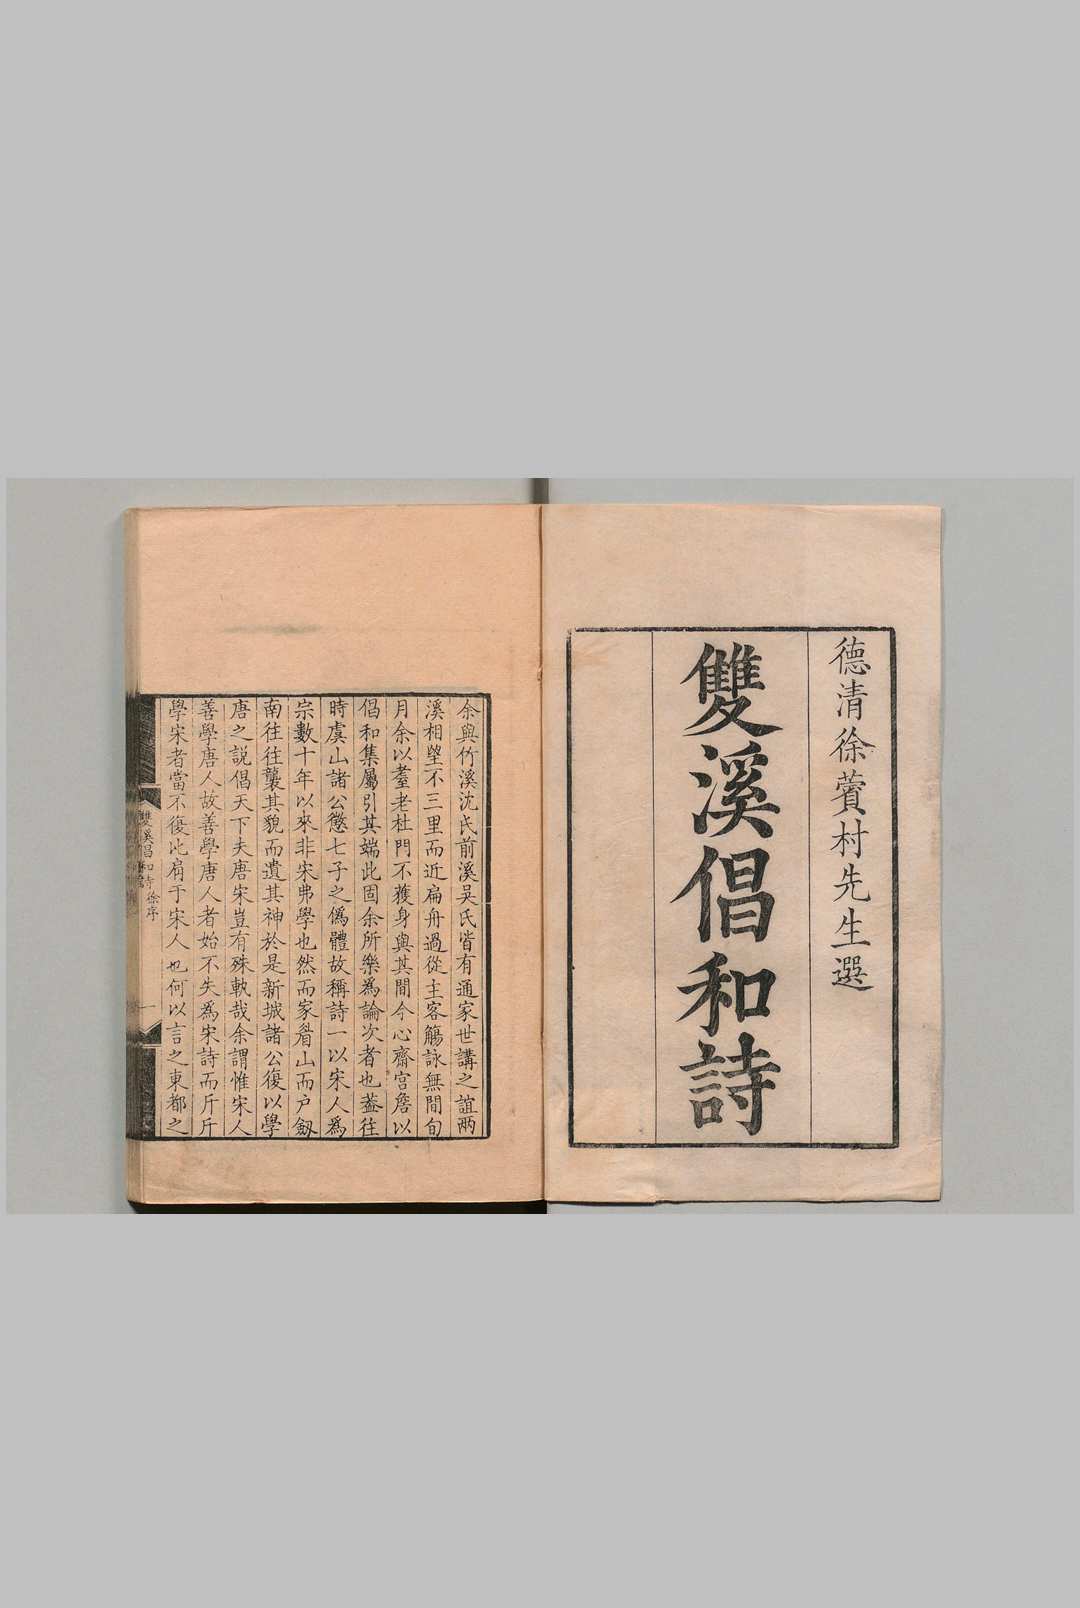 德清徐蘋村先生選
雙溪倡和詩
余與竹溪沈氏前溪吳氏皆有通家世講之誼兩
溪相望不三里而近扁舟過從主客觴詠無間旬
月余以耋老杜門不獲身與其間今心齋宫詹以
倡和集屬引其端此固余所樂為論次者也葢往
時虞山諸公懲七子之偽體故稱詩一以宋人為
宗數十年以來非宋弗學也然而家眉山而戶劔
南往往襲其貌而遺其神於是新城諸公復以學
唐之説倡天下夫唐宋豈有殊軌哉余謂惟宋人
善學唐人故善學唐人者始不失為宋詩而斤斤
學宋者當不復比肩于宋人也何以言之東都之
雙溪倡和詩徐序
一